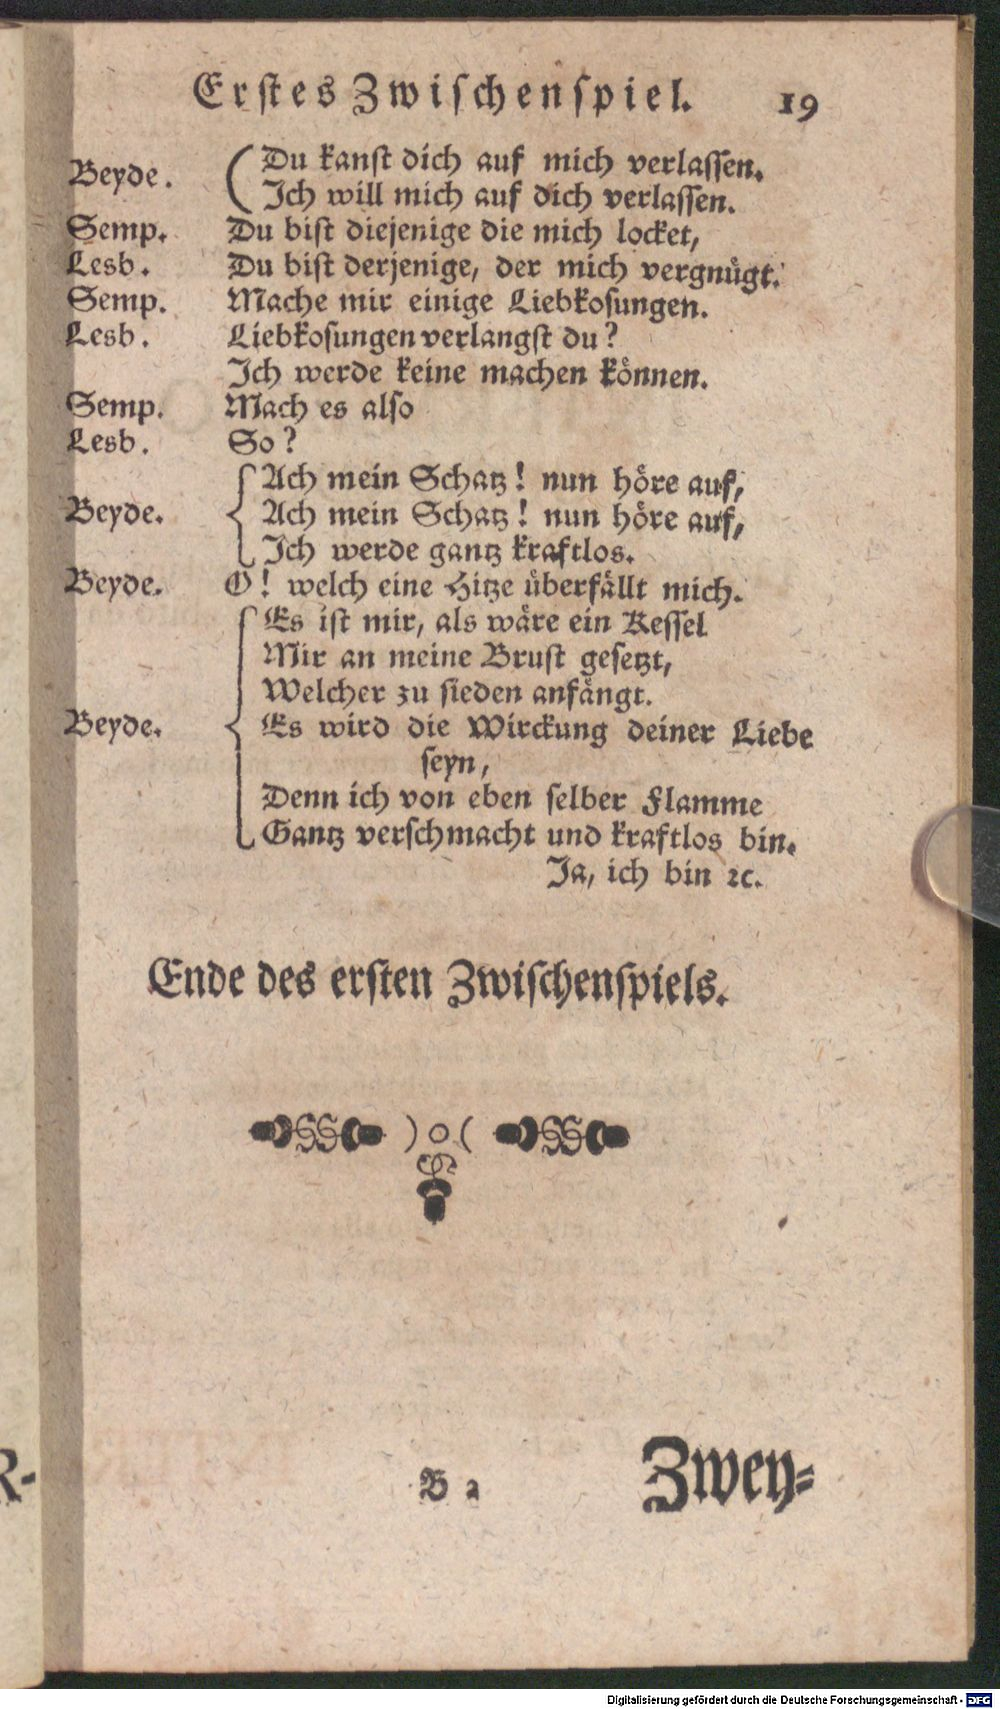 Erstes Zwischenspiel. 19
Beyde. (Du kanst dich auf mich verlassen.
Ich will mich auf dich verlassen.
Semp. Du bist diejenige die mich locket,
Lesb. Du bist derjenige, der mich vergnügt.
Semp. Mache mir einige Liebkosungen.
Lesb. Liebkosungen verlangst du?
Ich werde keine machen können.
Semp. Mach es also
Lesb. So?
Ach mein Schatz! nun höre auf,
Beyde. { Ach mein Schatz! nun höre auf,
Ich werde gantz kraftlos.
Beyde. O! welch eine Hitze überfällt mich.
Es ist mir, als wäre ein Kessel
Mir an meine Brust gesetzt,
Welcher zu sieden anfängt.
Beyde. { Es wird die Wirckung deiner Liebe
seyn,
Denn ich von eben selber Flamme
Gantz verschmacht und kraftlos bin.
Ja, ich bin ꝛc.
Ende des ersten Zwischenspiels.
) o (
B 2 Zwey-
R-
Digitalisierung gefördert durch die Deutsche Forschungsgemeinschaft - DFG